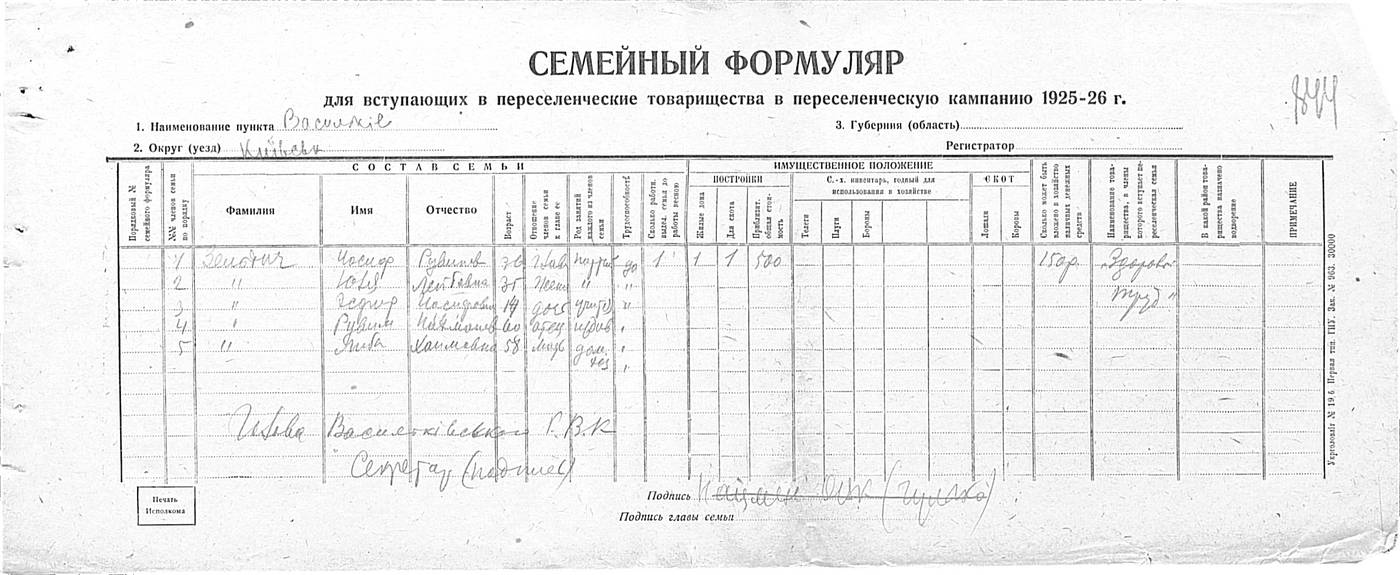 СЕМЕЙНЫЙ ФОРМУЛЯР
для вступающих в переселенческие товарищества в переселенческую кампанию 1925-26 г.
1. Наименование пункта Васильків
3. Губерния (область)
2. Округ (уезд) Київськ
Регистратор
СОСТАВ СЕМЬИ
ИМУЩЕСТВЕННОЕ ПОЛОЖЕНИЕ
Порядковый № семейного формуляра
№№ членов семьи по порядку
Фамилия
Имя
Отчество
Возраст
Отношение членов семьи к главе ее
Род занятий каждого из членов семьи
Трудоспособность
Сколько работн. выдел. семья до работы весною
ПОСТРОЙКИ
Жилые дома
Для скота
Приблизит. общая стоимость
С.-х. инвентарь, годный для использования в хозяйстве
Телеги
Плуги
Бороны
СКОТ
Лошади
Коровы
Сколько может быть вложено в хозяйство наличных денежных средств
Наименование товарищества, в члены которого вступает переселенческая семья
В какой район товарищества назначено водворение
ПРИМЕЧАНИЕ
1 Иосиф 36 до 1 1 1 500 150р. „Здоровой
2 " Лейбовна 35 " " труд"
3 " Иосифович 14 "
4 " Рувим 60 отец "
5 " Хаимовна 58 мать дом. хоз "
Голова Васильківського Р.В.К
Секретар (подписи)
Печать Исполкома
Подпись
Подпись главы семьи
Укрголовліт № 19 б Первая тип. ГПУ. Зак. № 963. 30000